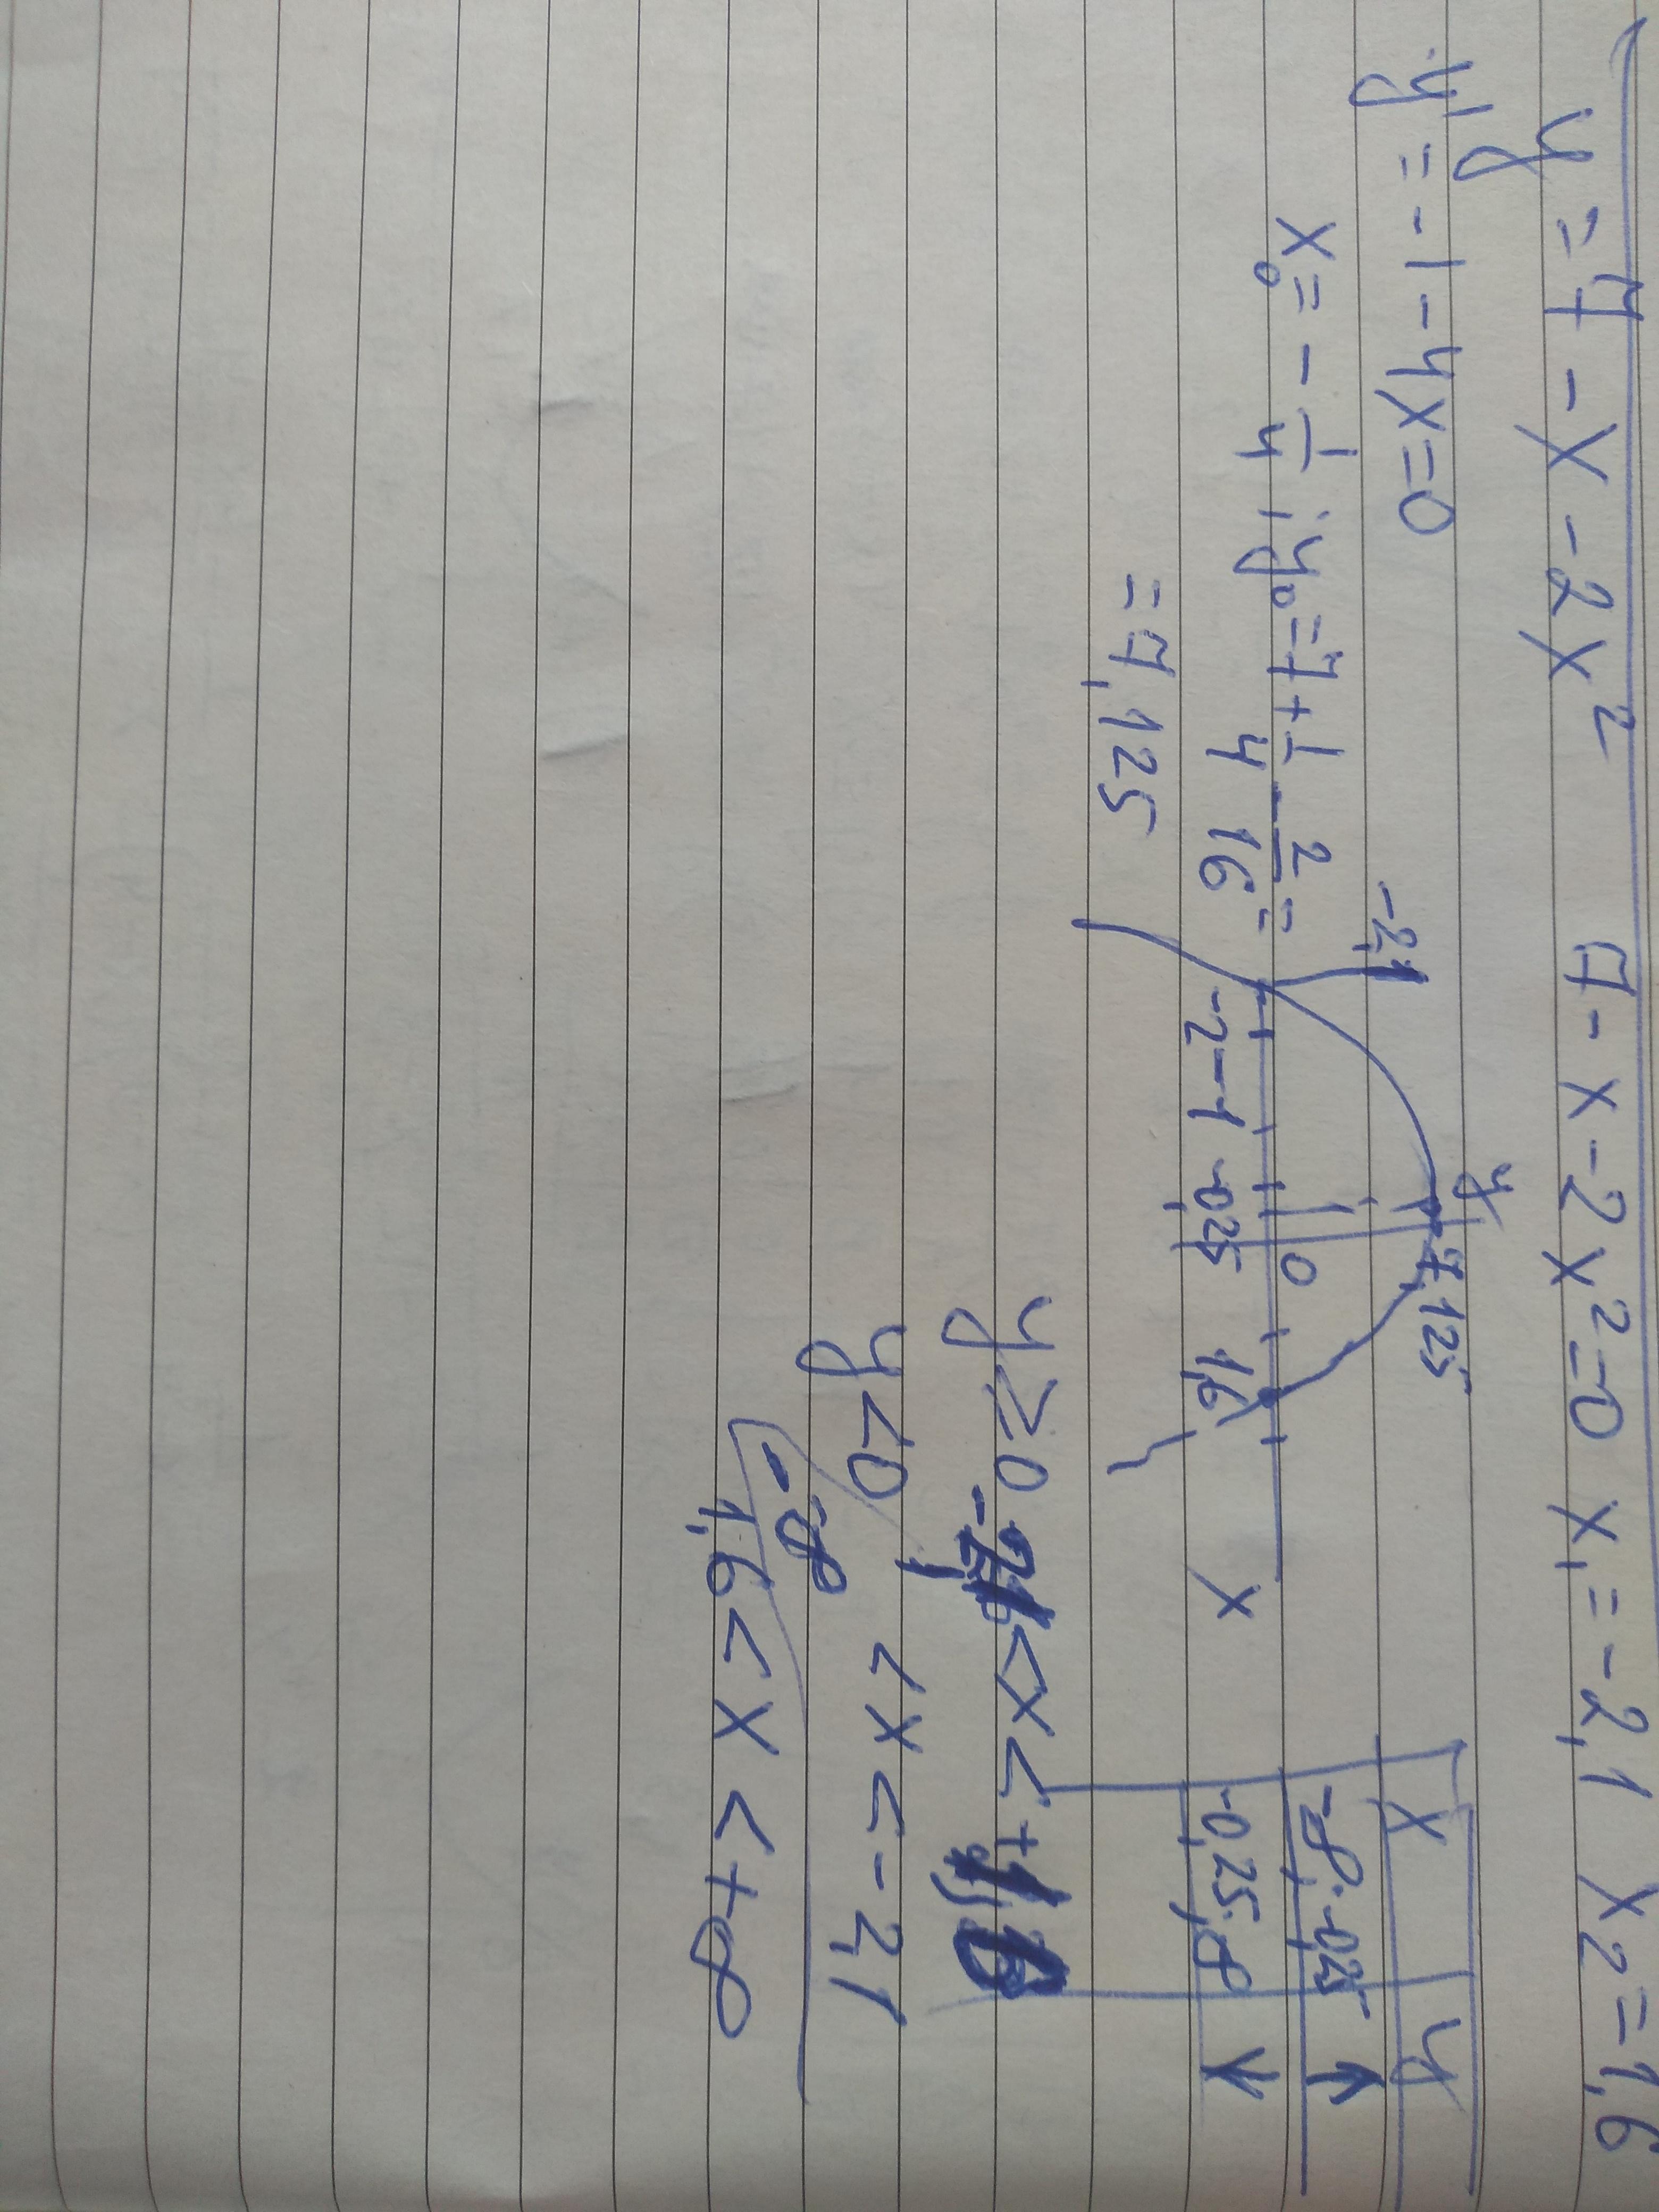 y = 7 - x - 2x² 7 - x - 2x² = 0 x₁ = -2,1 x₂ = 1,6
y' = -1 - 4x = 0
x₀ = - 1/4 ; y₀ = 7 + 1/4 - 2/16 =
= 7,125
y
7,125
-2,1
0
-2 -1 -0,25 1,6 x
x y
-∞; -0,25 ↑
-0,25; ∞ ↓
y ≥ 0 -2,1 < x < +1,6
y < 0 -∞ < x < -2,1
1,6 < x < +∞